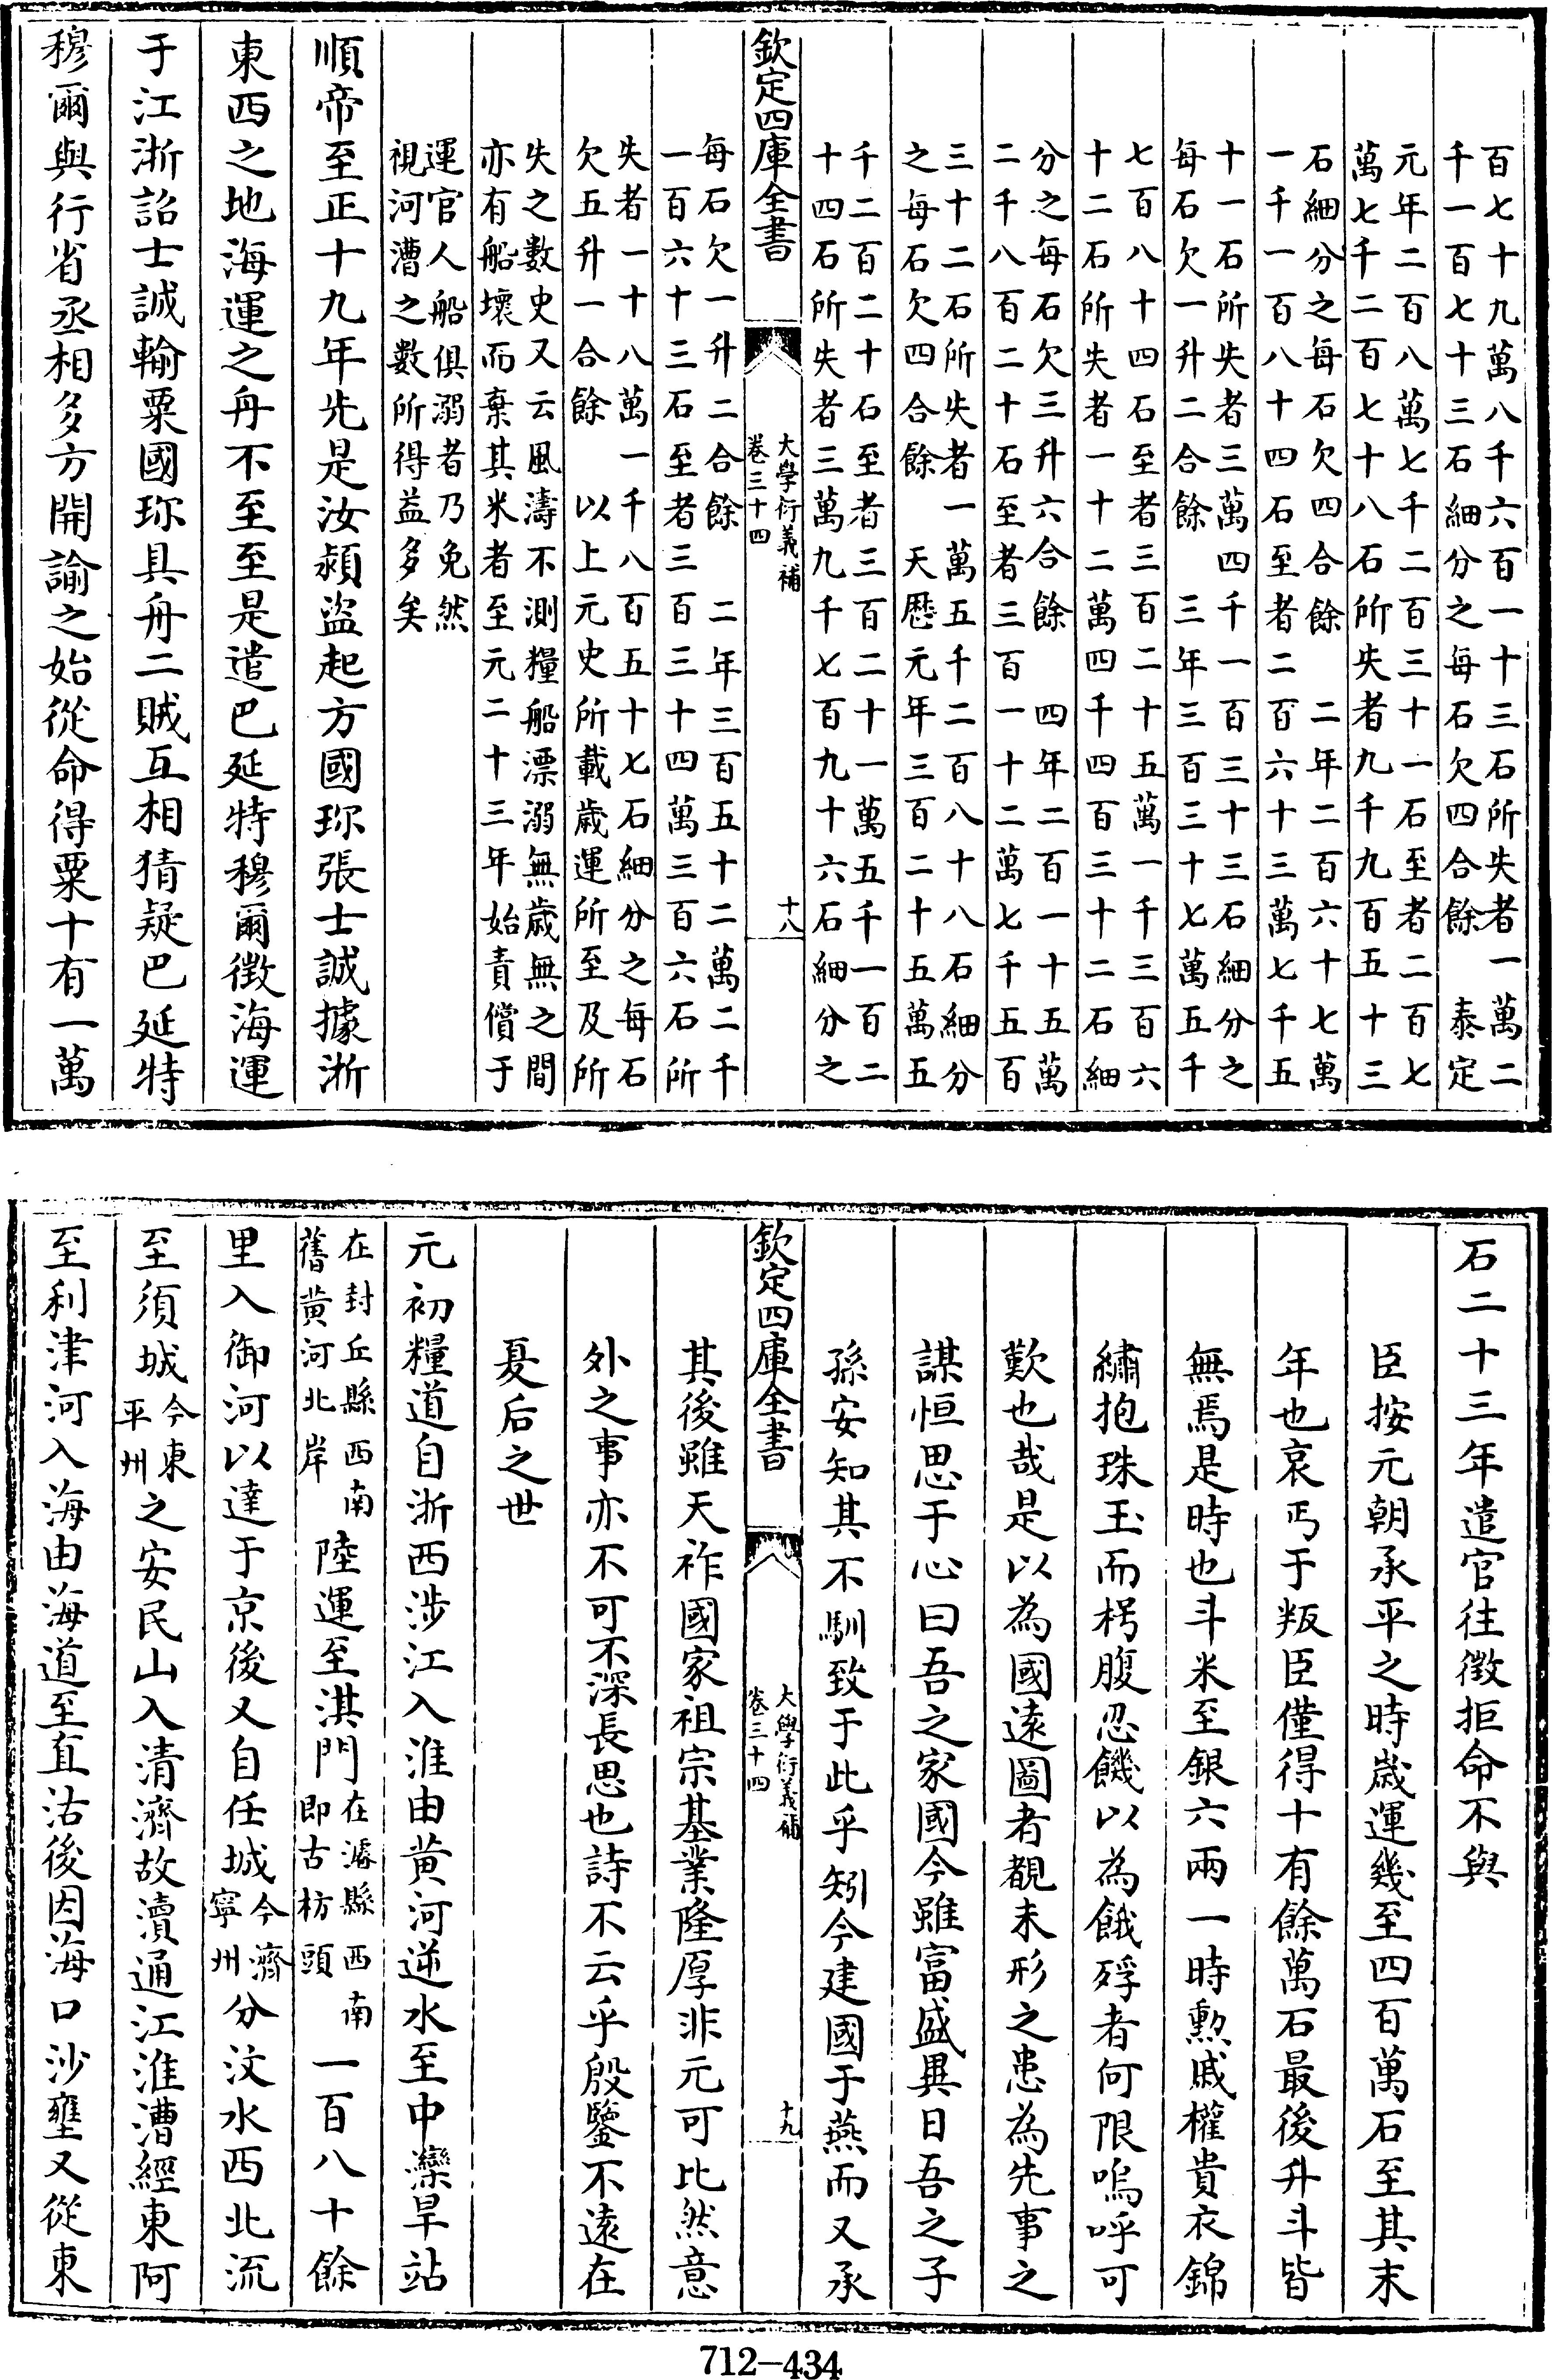 百七十九萬八千六百一十三石所失者一萬二
千一百七十三石細分之每石欠四合餘　泰定
元年二百八萬七千二百三十一石至者二百七
萬七千二百七十八石所失者九千九百五十三
石細分之每石欠四合餘　二年二百六十七萬
一千一百八十四石至者二百六十三萬七千五
十一石所失者三萬四千一百三十三石細分之
每石欠一升二合餘　三年三百三十七萬五千
七百八十四石至者三百二十五萬一千三百六
十二石所失者一十二萬四千四百三十二石細
分之每石欠三升六合餘　四年二百一十五萬
二千八百二十石至者三百一十二萬七千五百
三十二石所失者一萬五千二百八十八石細分
之每石欠四合餘　天厯元年三百二十五萬五
千二百二十石至者三百二十一萬五千一百二
十四石所失者三萬九千七百九十六石細分之
欽定四庫全書
大學衍義補
卷三十四
十八
每石欠一升二合餘　二年三百五十二萬二千
一百六十三石至者三百三十四萬三百六石所
失者一十八萬一千八百五十七石細分之每石
欠五升一合餘　以上元史所載歲運所至及所
失之數史又云風濤不測糧船漂溺無歲無之間
亦有船壞而棄其米者至元二十三年始責償于
運官人船俱溺者乃免然
視河漕之數所得益多矣
順帝至正十九年先是汝潁盜起方國珎張士誠據浙
東西之地海運之舟不至至是遣巴延特穆爾徵海運
于江浙詔士誠輸粟國珎具舟二賊互相猜疑巴延特
穆爾與行省丞相多方開諭之始從命得粟十有一萬
石二十三年遣官往徵拒命不與
臣按元朝承平之時歲運幾至四百萬石至其末
年也哀丐于叛臣僅得十有餘萬石最後升斗皆
無焉是時也斗米至銀六兩一時勲戚權貴衣錦
繡抱珠玉而枵腹忍饑以為餓殍者何限嗚呼可
歎也哉是以為國遠圖者覩未形之患為先事之
謀恒思于心曰吾之家國今雖富盛異日吾之子
孫安知其不馴致于此乎矧今建國于燕而又承
欽定四庫全書
大學衍義補
卷三十四
十九
其後雖天祚國家祖宗基業隆厚非元可比然意
外之事亦不可不深長思也詩不云乎殷鑒不遠在
夏后之世
元初糧道自浙西涉江入淮由黄河逆水至中灤旱站
在封丘縣西南
舊黄河北岸
陸運至淇門
在濬縣西南
即古枋頭
一百八十餘
里入御河以達于京後又自任城
今濟
寧州
分汶水西北流
至須城
今東
平州
之安民山入清濟故瀆通江淮漕經東阿
至利津河入海由海道至直沽後因海口沙壅又從東
712-434